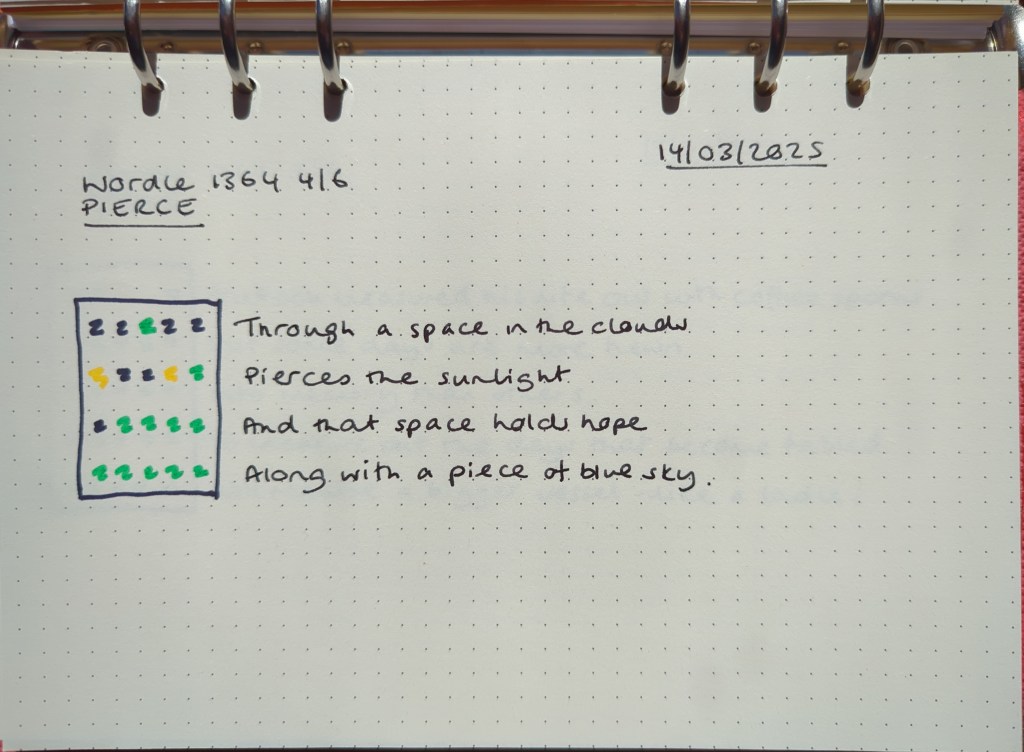 14/03/2025
Wordle 1364 4/6
PIERCE
Through a space in the clouds
Pierces the sunlight
And that space holds hope
Along with a piece of blue sky.